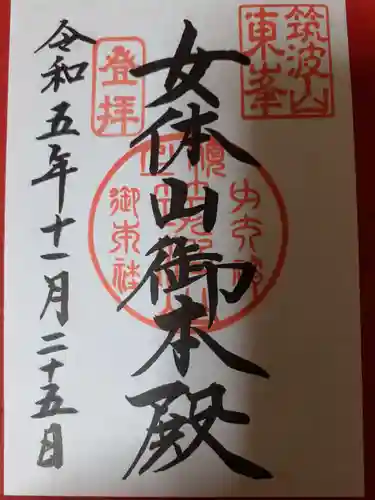 筑波山
東峯
登拝
女体山御本殿
令和五年十一月二十五日